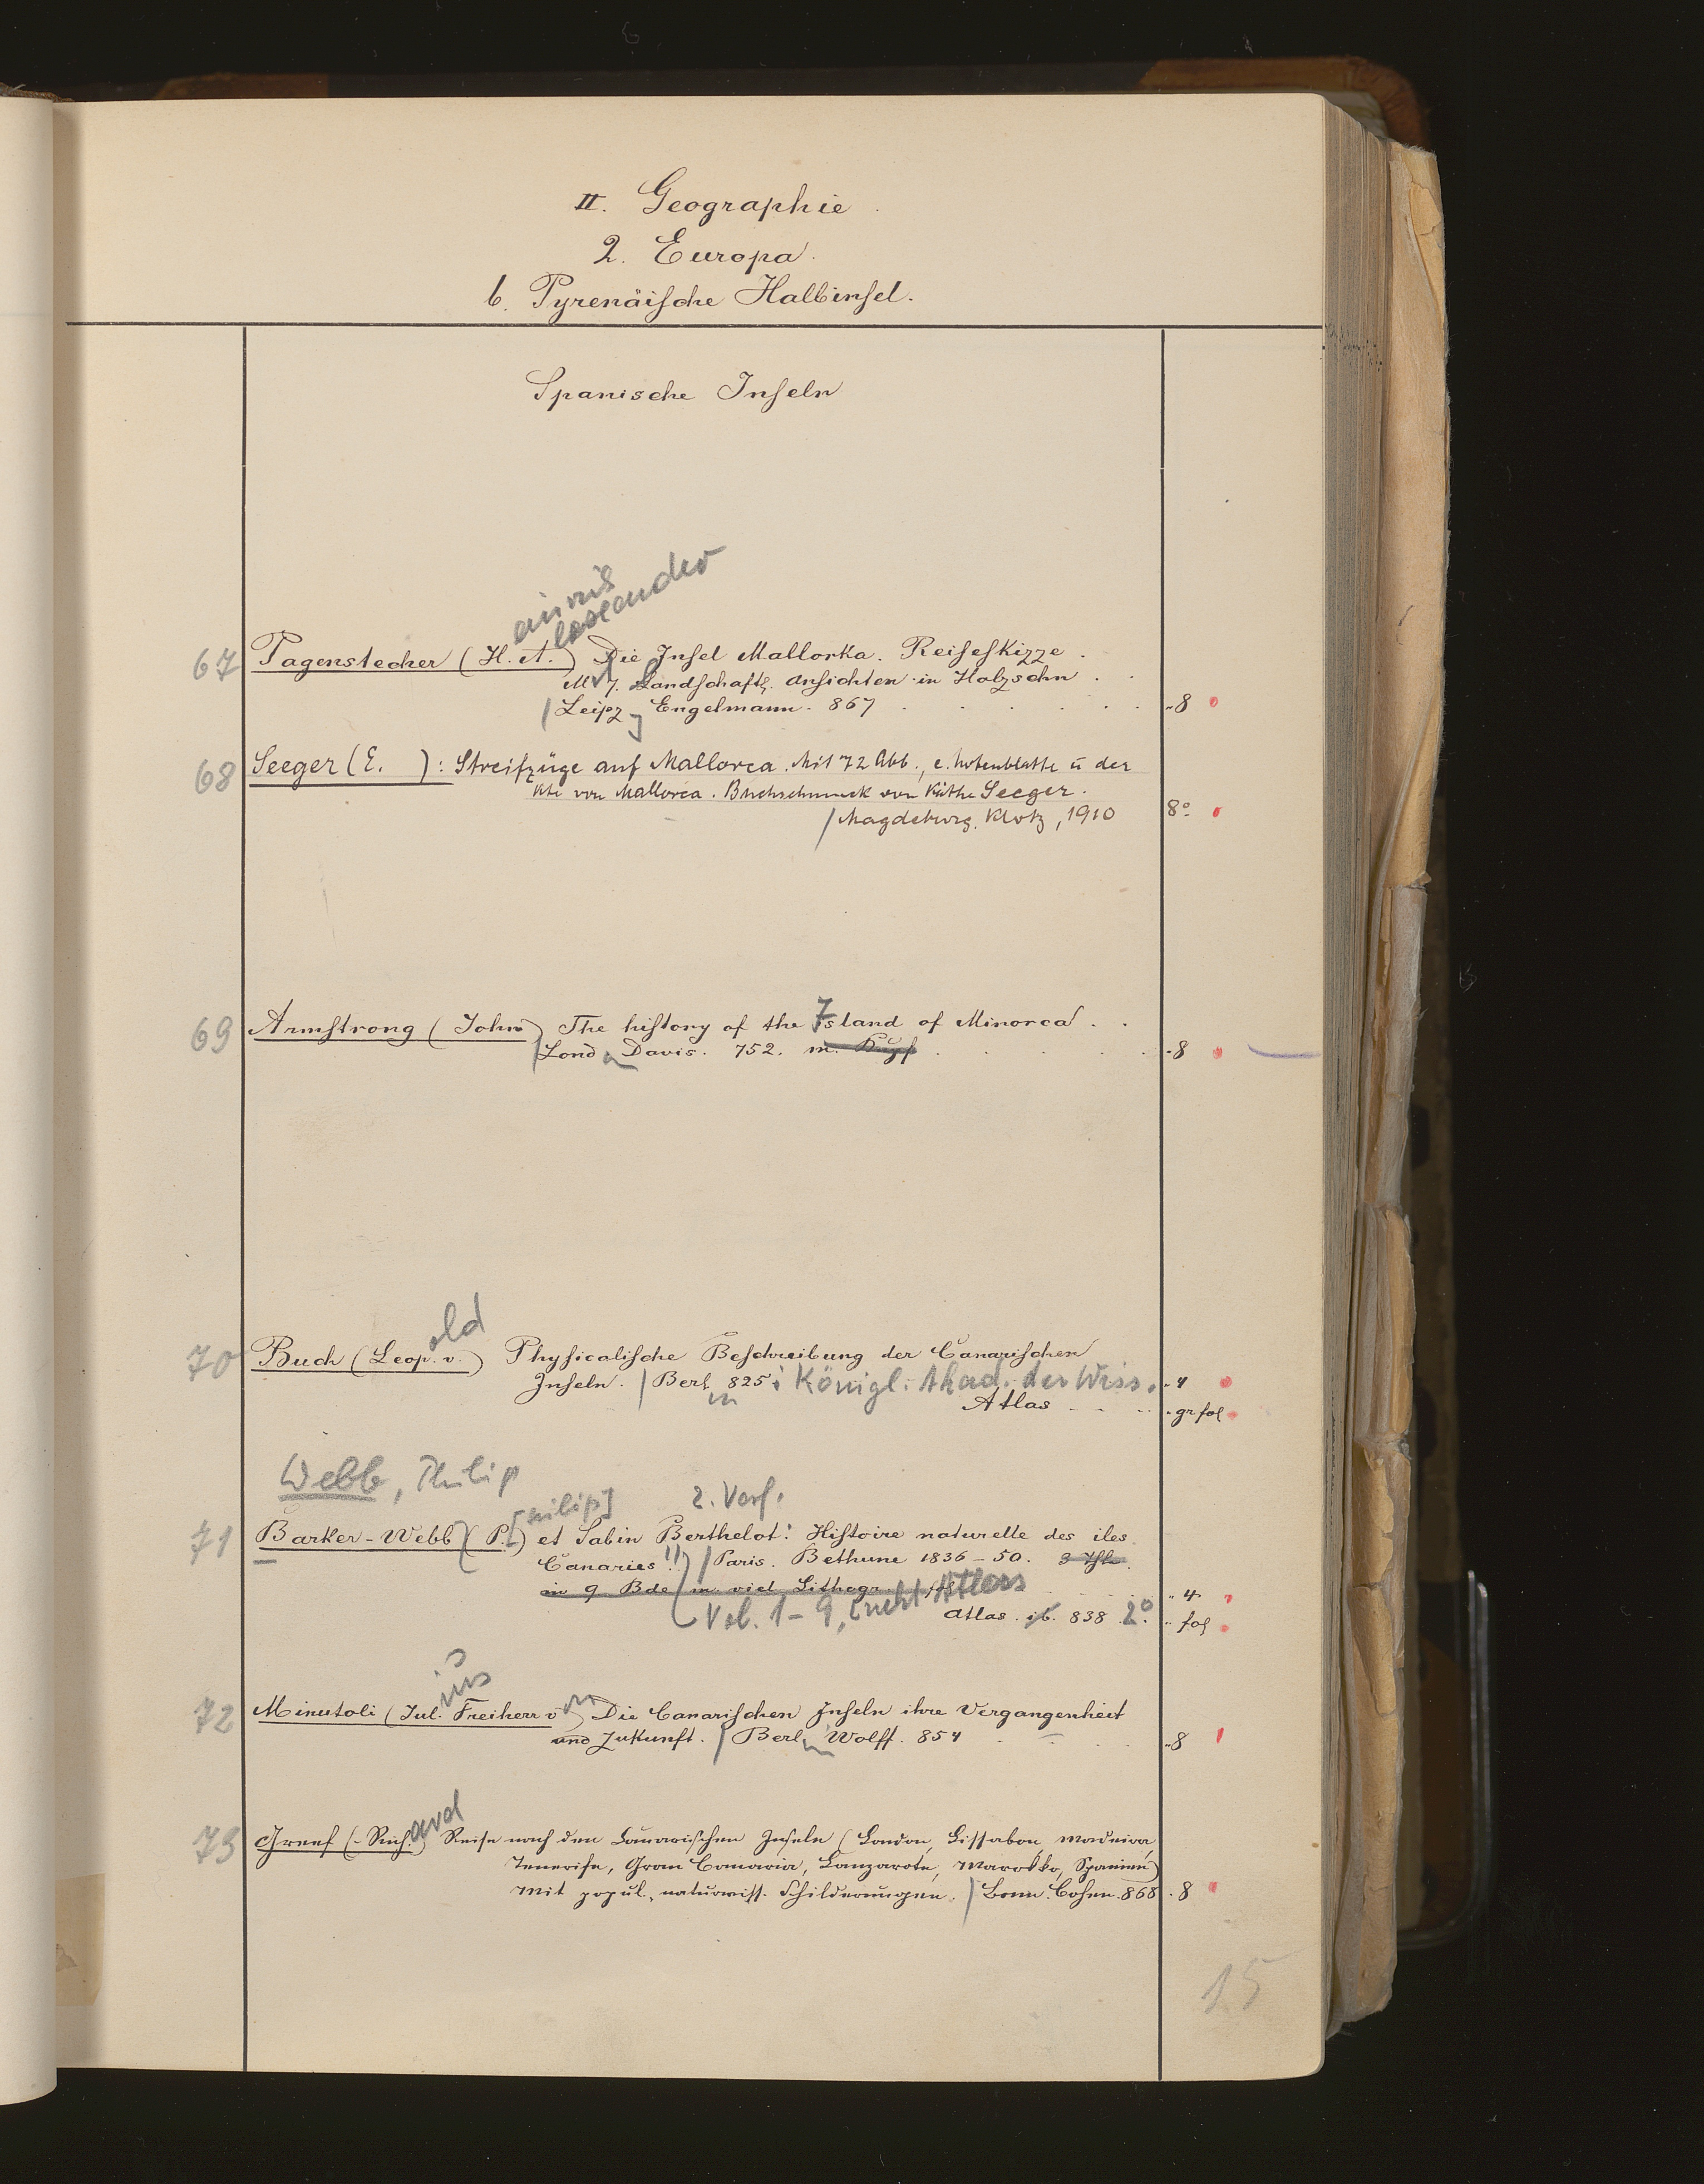 II. Geographie.
2. Europa.
b. Pyrenäische Halbinsel.
Spanische Inseln
67 Pagenstecher (H. A.) Die Insel Mallorka. Reiseskizze.
M 7. Landschaftl. Ansichten in Holzschn.
Leipz Engelmann. 867 8
68 Seeger (E. ): Streifzüge auf Mallorca. Mit 72 Abb., e. Notenblatte u der
Kte von Mallorca. Buchschmuck von Käthe Seeger.
Magdeburg. Klotz, 1910 8°
69 Armstrong (John) The history of the Island of Minorca.
Lond Davis. 752. m. Kupf 8
old
70 Buch (Leop. v.) Physicalische Beschreibung der Canarischen
Inseln. Berlin 825 Königl. Akad. der Wiss. 4
Atlas gr fol
Webb, Philip
[hilip] 2. Verf.
71 Barker-Webb (P.) et Sabin Berthelot: Histoire naturelle des iles
Canaries!! Paris. Bethune 1836-50. 3 Thle
in 9 Bde m viel Lithogr. 4
Vol. 1-9, [nebst] Atlas
Atlas. ib. 838 2° fol
ius
72 Minutoli (Jul. Freiherr von) Die Canarischen Inseln ihre Vergangenheit
und Zukunft. Berlin Wolff. 854 8
73 Greef (Richard) Reise nach den Canarischen Inseln (London, Lissabon, Madeira,
Tenerife, Gran Canaria, Lanzarote, Marokko, Spanien)
Mit popul. naturwiss. Schilderungen. Bonn. Cohen. 868 8
15